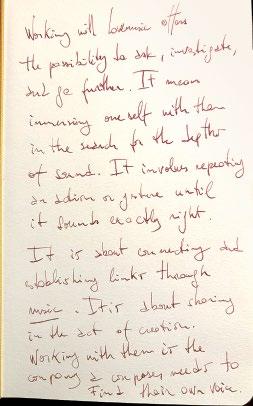 Working with Lovemusic offers
the possibility to ask, investigate,
and go further. It means
immersing oneself with them
in the search for the depths
of sound. It involves repeating
an action or gesture until
it sounds exactly right.
It is about connecting and
establishing links through
music. It is about sharing
in the act of creation.
Working with them is the
company a composer needs to
find their own voice.